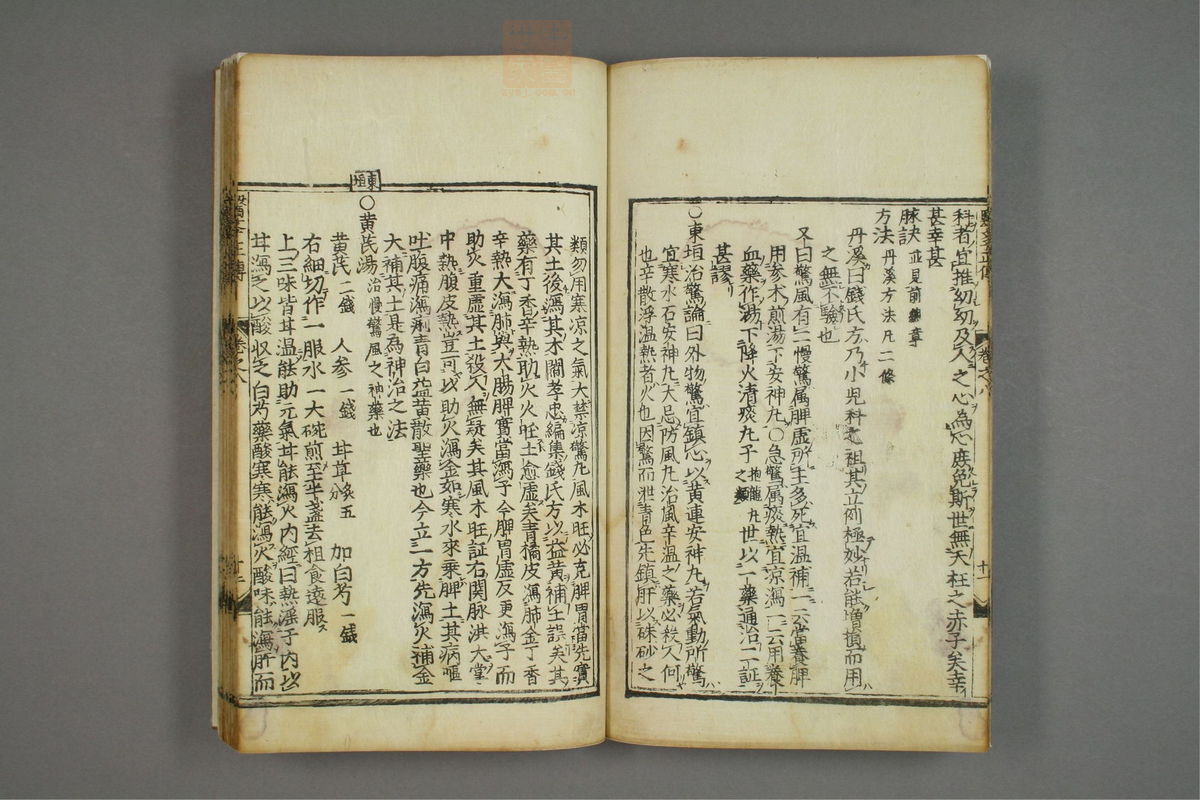 科者宜推幼幼及人之心為心庶免斯世無夭枉之赤子矣幸
甚幸甚
脉訣 並見前章
方法 丹溪方法凡二條
丹溪曰錢氏方乃小児科之祖其立例極妙若能増損而用
之無不驗也
又曰驚風有二慢驚属脾虚所主多死宜温補一云當養脾
用参朮煎湯下安神丸〇急驚属痰熱宜凉瀉一云用養
血藥作湯下降火清痰丸子 抱龍丸之類 世以一藥通治二証
甚謬
〇東垣治驚論曰外物驚宜鎮心以黄連安神丸若氣動所驚
宜寒水石安神丸大忌防風丸治風辛温之藥必殺人何
也辛散浮温熱者火也因驚而泄青色先鎮肝以硃砂之
醫學正傳 卷之八 十二
類勿用寒凉之氣大禁凉驚丸風木旺必克脾胃當先實
其土後瀉其木閻孝忠編集錢氏方以益黄補土誤矣其
藥有丁香辛熱助火火旺土愈虚矣青橘皮瀉肺金丁香
辛熱大瀉肺與大腸脾實當瀉子今脾胃虚反更瀉子而
助火重虚其土殺人無疑矣其風木旺証右関脉洪大掌
中熱腹皮熱豈可以助火瀉金如寒水來乗脾土其病嘔
吐腹痛瀉痢青白益黄散聖藥也今立一方先瀉火補金
大補其土是為神治之法
東垣
〇黄芪湯 治慢驚風之神藥也
黄芪二錢 人参一錢 甘草炙五分 加白芍一錢
右細切作一服水一大碗煎至半盞去柤食遠服
上三味皆甘温能助元氣甘能瀉火内經曰熱淫于内以
甘瀉之以酸収之白芍藥酸寒寒能瀉火酸味能瀉肝而